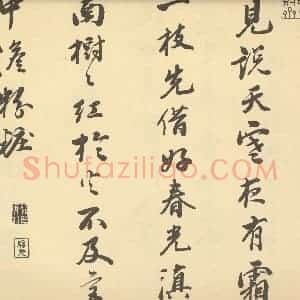 見説天寒夜有霜
一枝先借好春光滇
南樹〻紅於火不及
中澹粉妝
Shufaziliao.com